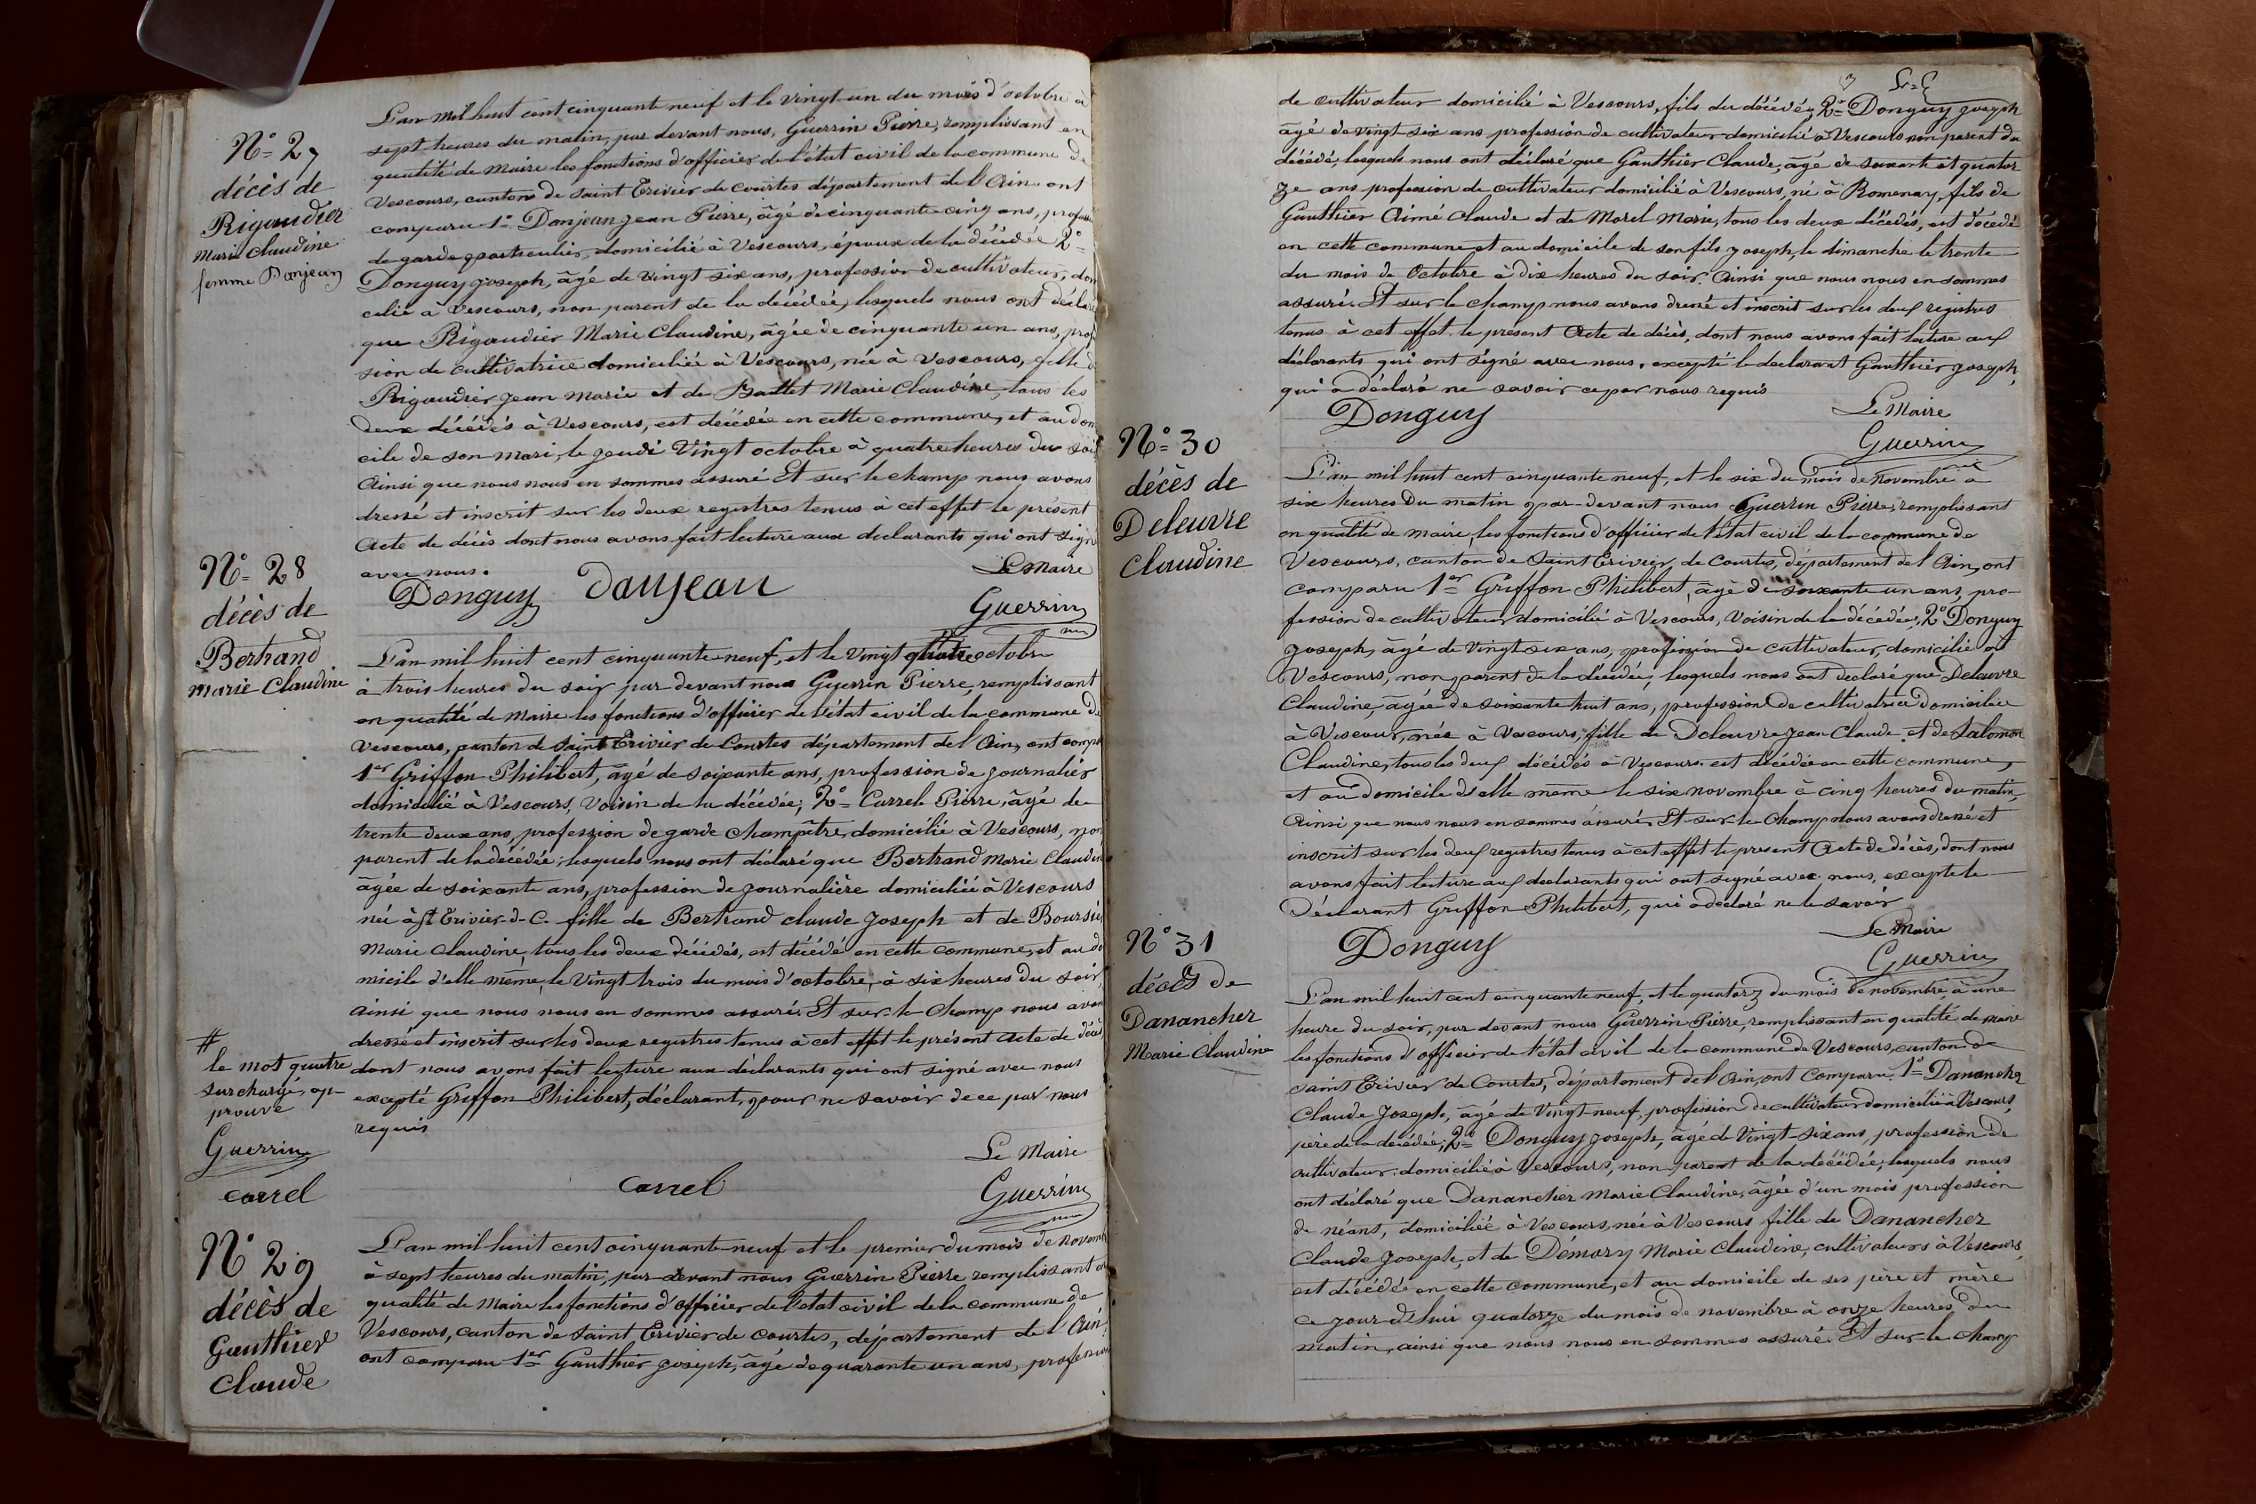 N° 27
décès de
Rigaudier
Marie Claudine
femme Danjean
L'an mil huit cent cinquante neuf et le vingt un du mois d'octobre à
sept heures du matin, par devant nous, Guerrin Pierre, remplissant en
qualité de Maire les fonctions d'officier de l'état civil de la commune de
Vescours, canton de Saint Trivier de Courtes département de l'Ain ont
comparu 1° Danjean Jean Pierre, âgé de cinquante cinq ans, profession
de garde particulier, domicilié à Vescours, époux de la décédée 2°
Donguy Joseph, âgé de vingt six ans, profession de cultivateur, domi
cilié à Vescours, non parent de la décédée, lesquels nous ont déclaré
que Rigaudier Marie Claudine, âgée de cinquante un ans, profes
sion de cultivatrice domiciliée à Vescours, née à Vescours, fille de
Rigaudier Jean Marie et de Ballet Marie Claudine, tous les
deux décédés à Vescours, est décédée en cette commune, et au domi
cile de son mari, le jeudi vingt octobre à quatre heures du soir
Ainsi que nous nous en sommes assuré Et sur le champ nous avons
dressé et inscrit sur les deux registres tenus à cet effet le présent
Acte de décès dont nous avons fait lecture aux déclarants qui ont signé
avec nous.
Le Maire
Donguy Danjean
Guerrin
N° 28
décès de
Bertrand
Marie Claudine
L'an mil huit cent cinquante neuf, et le vingt quatre octobre
à trois heures du soir par devant nous Guerrin Pierre, remplissant
en qualité de Maire les fonctions d'officier de l'état civil de la commune de
Vescours, canton de Saint Trivier de Courtes département de l'Ain, ont comparu
1er Griffon Philibert, âgé de soixante ans, profession de journalier
domicilié à Vescours, voisin de la décédée; 2° Carrel Pierre, âgé de
trente deux ans, profession de garde champêtre, domicilié à Vescours, non
parent de la décédée; lesquels nous ont déclaré que Bertrand Marie Claudine
âgée de soixante ans, profession de journalière domiciliée à Vescours
née à St Trivier-d-C. fille de Bertrand Claude Joseph et de
Marie Claudine, tous les deux décédés, est décédé en cette commune, et au do
micile d'elle même, le vingt trois du mois d'octobre, à six heures du soir,
ainsi que nous nous en sommes assuré. Et sur le champ nous avons
dressé et inscrit sur les deux registres tenus à cet effet le présent Acte de décès
dont nous avons fait lecture aux déclarants qui ont signé avec nous
excepté Griffon Philibert, déclarant, pour ne savoir de ce par nous
requis
#
le mot quatre
surchargé, ap
prouvé
Guerrin
Carrel
Le Maire
Carrel
Guerrin
N° 29
décès de
Gauthier
Claude
L'an mil huit cent cinquante neuf et le premier du mois de novembre
à sept heures du matin, par devant nous Guerrin Pierre remplissant en
qualité de Maire les fonctions d'officier de l'état civil de la commune de
Vescours, canton de Saint Trivier de Courtes, département de l'Ain
ont comparu 1er Gauthier Joseph, âgé de quarante un ans, profession
de cultivateur domicilié à Vescours, fils du décédé; 2° Donguy Joseph
âgé de vingt six ans profession de cultivateur domicilié à Vescours non parent du
décédé; lesquels nous ont déclaré que Gauthier Claude, âgé de soixante et quator
ze ans profession de cultivateur domicilié à Vescours, né à Romenay, fils de
Gauthier Aimé Claude et de Morel Marie, tous les deux décédés, est décédé
en cette commune et au domicile de son fils Joseph, le dimanche le trente
du mois de Octobre à dix heures du soir. Ainsi que nous nous en sommes
assuré. Et sur le champ nous avons dressé et inscrit sur les deux registres
tenus à cet effet le présent Acte de décès, dont nous avons fait lecture aux
déclarants qui ont signé avec nous, excepté le déclarant Gauthier Joseph,
qui a déclaré ne savoir ce par nous requis
Donguy
Le Maire
Guerrin
N° 30
décès de
Deleuvre
Claudine
L'an mil huit cent cinquante neuf, et le six du mois de Novembre à
six heures du matin par-devant nous Guerrin Pierre, remplissant
en qualité de maire, les fonctions d'officier de l'état civil de la commune de
Vescours, canton de Saint Trivier de Courtes, département de l'Ain, ont
comparu 1er Griffon Philibert, âgé de soixante un ans, pro-
fession de cultivateur domicilié à Vescours, voisin de la décédée; 2° Donguy
Joseph, âgé de vingt six ans, profession de cultivateur, domicilié à
Vescours, non parent de la décédée; lesquels nous ont déclaré que Deleuvre
Claudine, âgée de soixante huit ans, profession de cultivatrice domiciliée
à Vescours, née à Vescours, fille de Deleuvre Jean Claude et de Salomon
Claudine, tous les deux décédés à Vescours. est décédée en cette commune,
et au domicile d'elle même le six novembre à cinq heures du matin,
Ainsi que nous nous en sommes assuré. Et sur le champ nous avons dressé et
inscrit sur les deux registres tenus à cet effet le présent Acte de décès, dont nous
avons fait lecture aux déclarants qui ont signé avec nous, excepté le
Déclarant Griffon Philibert, qui a déclaré ne le savoir
Le Maire
Donguy
Guerrin
N° 31
décès de
Danancher
Marie Claudine
L'an mil huit cent cinquante neuf, et le quatorz du mois de novembre, à une
heure du soir, par devant nous Guerrin Pierre, remplissant en qualité de maire
les fonctions d'officier de l'état civil de la commune de Vescours, canton de
Saint Trivier de Courtes, département de l'Ain, ont comparu. 1° Danancher
Claude Joseph, âgé de vingt-neuf, profession de cultivateur domicilié à Vescours,
père de la décédée; 2° Donguy Joseph, âgé de vingt-six ans, profession de
cultivateur, domicilié à Vescours, non parent de la décédée; lesquels nous
ont déclaré que Danancher Marie Claudine, âgée d'un mois profession
de néant, domiciliée à Vescours, née à Vescours fille de Danancher
Claude Joseph, et de Démory Marie Claudine, cultivateurs à Vescours,
est décédée en cette commune, et au domicile de ses père et mère
ce jour d'hui quatorze du mois de novembre à onze heures du
matin, ainsi que nous nous en sommes assuré. Et sur le champ